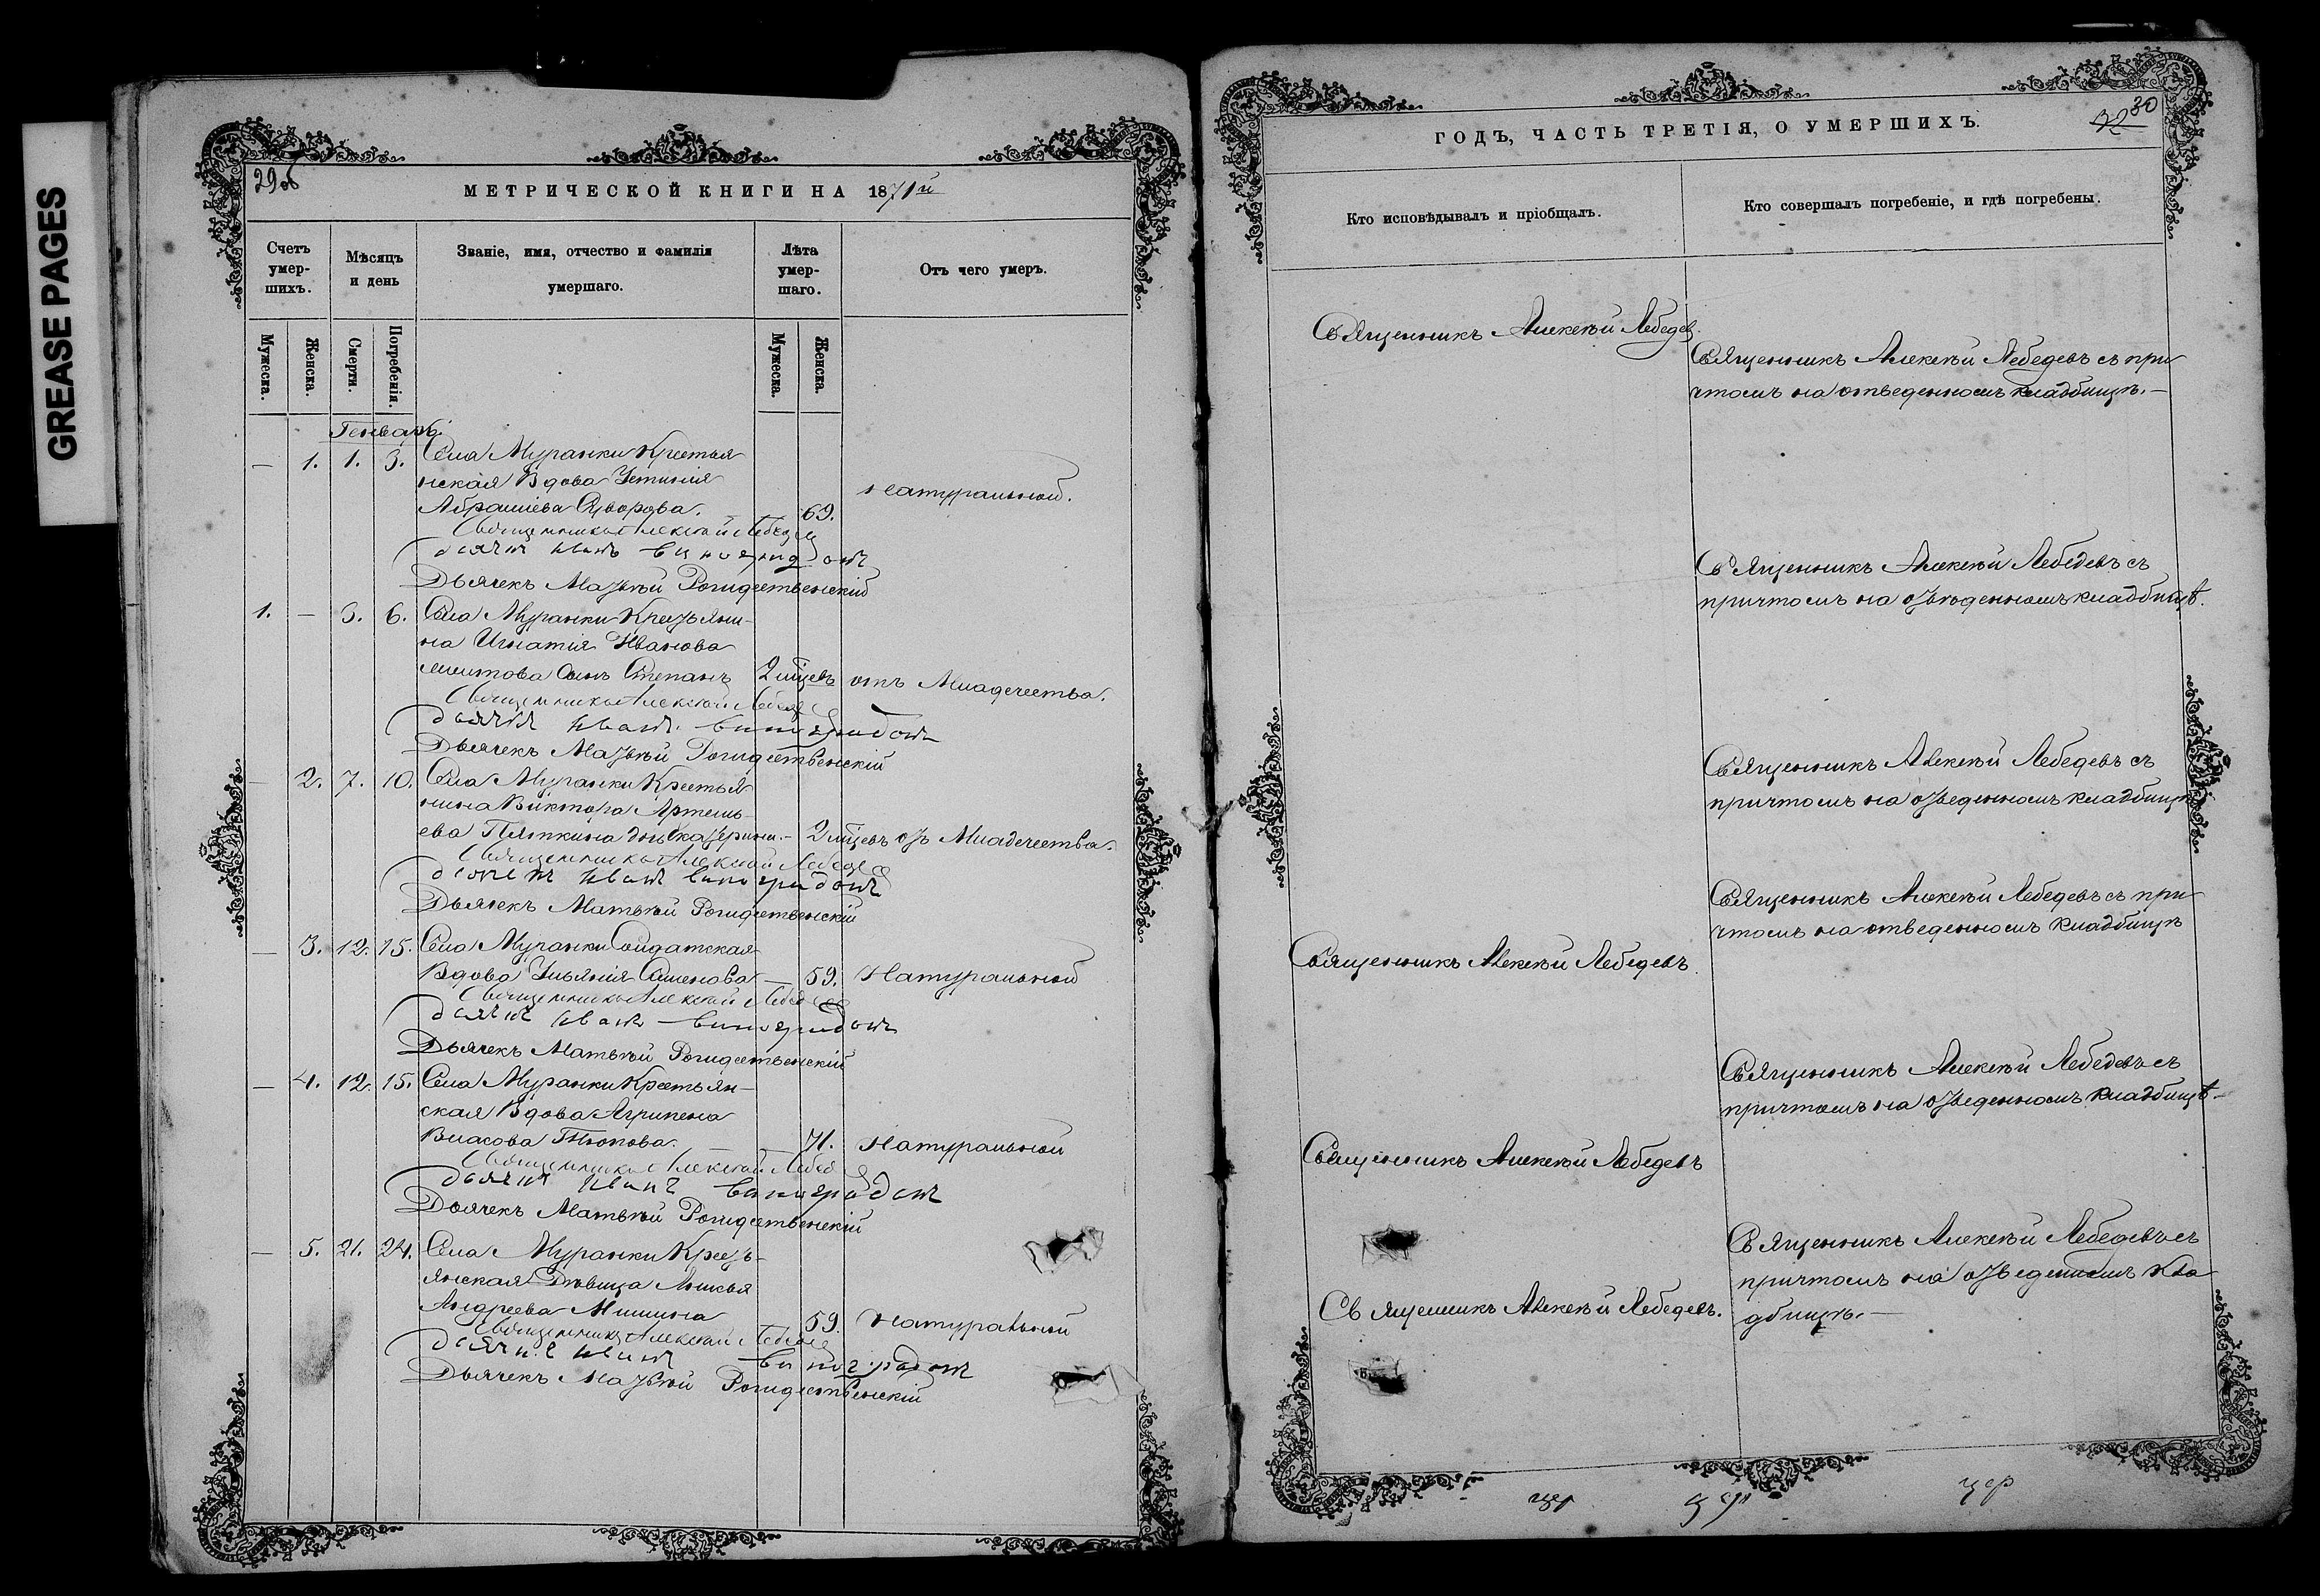 GREASE PAGES
29об
МЕТРИЧЕСКОЙ КНИГИ НА 1871й
Счетъ умер-шихъ.
Мѣсяцъ и день
Званіе, имя, отчество и фамилія умершаго.
Лѣта умер-шаго.
Отъ чего умеръ.
Мужеска.
Женска.
Смерти.
Погребенія.
Мужеска.
Женска.
Генварь.
— 1. 1. 3. Села Муранки Крестья
нская Вдова Устинія
натуральной.
69.
Священникъ Алексѣй Лебедев
дьячкъ Иванъ Виноградовъ
Дьячекъ Матвѣй Рождественскій
1. — 3. 6. Села Муранки Крестьяни-
на Игнатія Иванова
сынъ Степанъ 2 мѣсцевъ отъ Младечества.
Священникъ Алексѣй Лебедев
дьячкъ Иванъ Виноградовъ
Дьячекъ Матвѣй Рождественскій
— 2. 7. 10. Села Муранки Крестья
нина Виктора Артемь-
ева Пяткина дочь Катерина.— 2 мѣсцевъ отъ Младечества.
Священникъ Алексѣй Лебедев
дьячекъ Иванъ Виноградовъ
Дьячекъ Матвѣй Рождественскій
— 3. 12. 15. Села Муранки Солдатская
Вдова Ульянія Семенова — 59. Натуральной
Священникъ Алексѣй Лебедев
дьячкъ Иванъ Виноградовъ
Дьячекъ Матвѣй Рождественскій
— 4. 12. 15. Села Муранки Крестьян-
ская Вдова Агрипена
Власова Тюпова. 71. Натуральной
Священникъ Алексѣй Лебедев
дьячкъ Иванъ Виноградовъ
Дьячекъ Матвѣй Рождественскій
— 5. 21. 24. Села Муранки Кресть-
янская Дѣвица Лукья
Андреева Мишина 59. Натуральной
Священникъ Алексѣй Лебедев
дьячкъ Иванъ Виноградовъ
Дьячекъ Матвѣй Рождественскій
30
ГОДЪ, ЧАСТЬ ТРЕТІЯ, О УМЕРШИХЪ.
Кто исповѣдывалъ и пріобщалъ.
Кто совершалъ погребеніе, и гдѣ погребены.
Священникъ Алексѣй Лебедев.
Священникъ Алексѣй Лебедевъ съ при
чтомъ на отведенномъ кладбищѣ.—
Священникъ Алексѣй Лебедевъ съ
причтомъ на отведенномъ кладбищѣ.
Священникъ Алексѣй Лебедевъ съ
причтомъ на отведенномъ кладбищѣ
Священникъ Алексѣй Лебедевъ съ при
чтомъ на отведенномъ кладбищѣ
Священникъ Алексѣй Лебедевъ.
Священникъ Алексѣй Лебедевъ съ
причтомъ на отведенномъ кладбищѣ
Священникъ Алексѣй Лебедевъ
Священникъ Алексѣй Лебедевъ съ
причтомъ на отведенномъ кла
дбищѣ.—
Священникъ Алексѣй Лебедевъ.